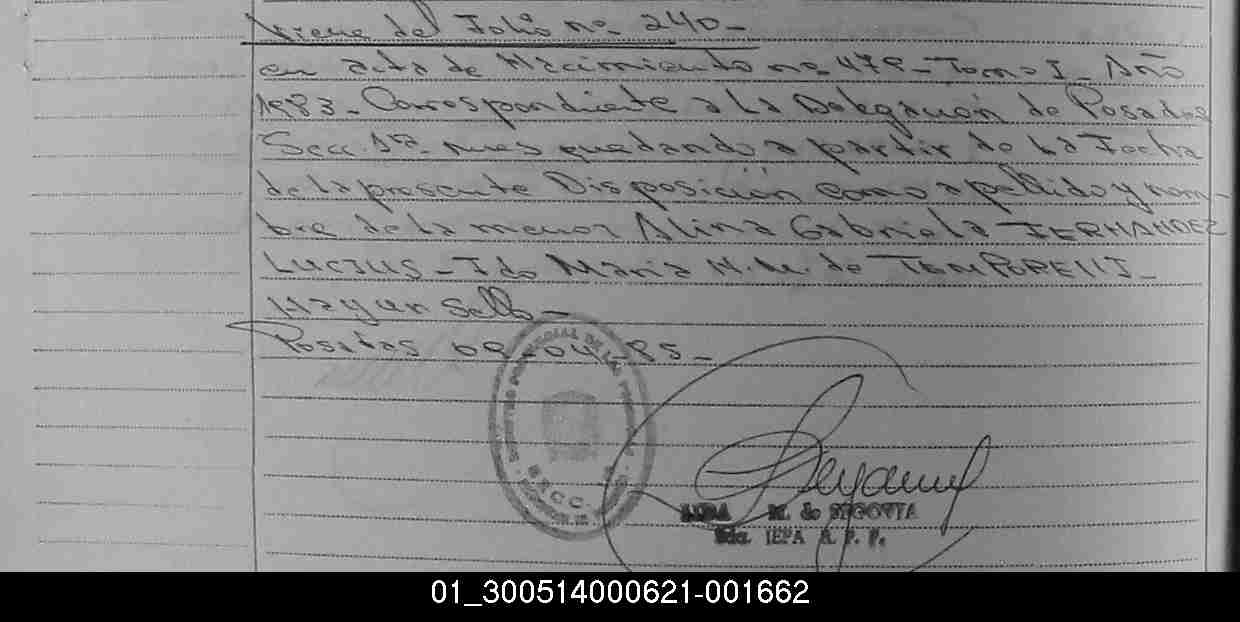 Viene del Folio nº 240-
en acta de Nacimiento nº 478- Tomo I- Año
1983- Correspondiente a la Delegación de Posadas
Secc. 1ra. pues quedando a partir de la Fecha
de la presente Disposición como apellido y nom-
bre de la menor Alina Gabriela FERNANDEZ
LUCIUS- Fdo Maria N. M. de
Hay un Sello-
Posadas 09-04-85-
R.P.C.C.
M. de SEGOVIA
IEPA R. P. P.
01_300514000621-001662